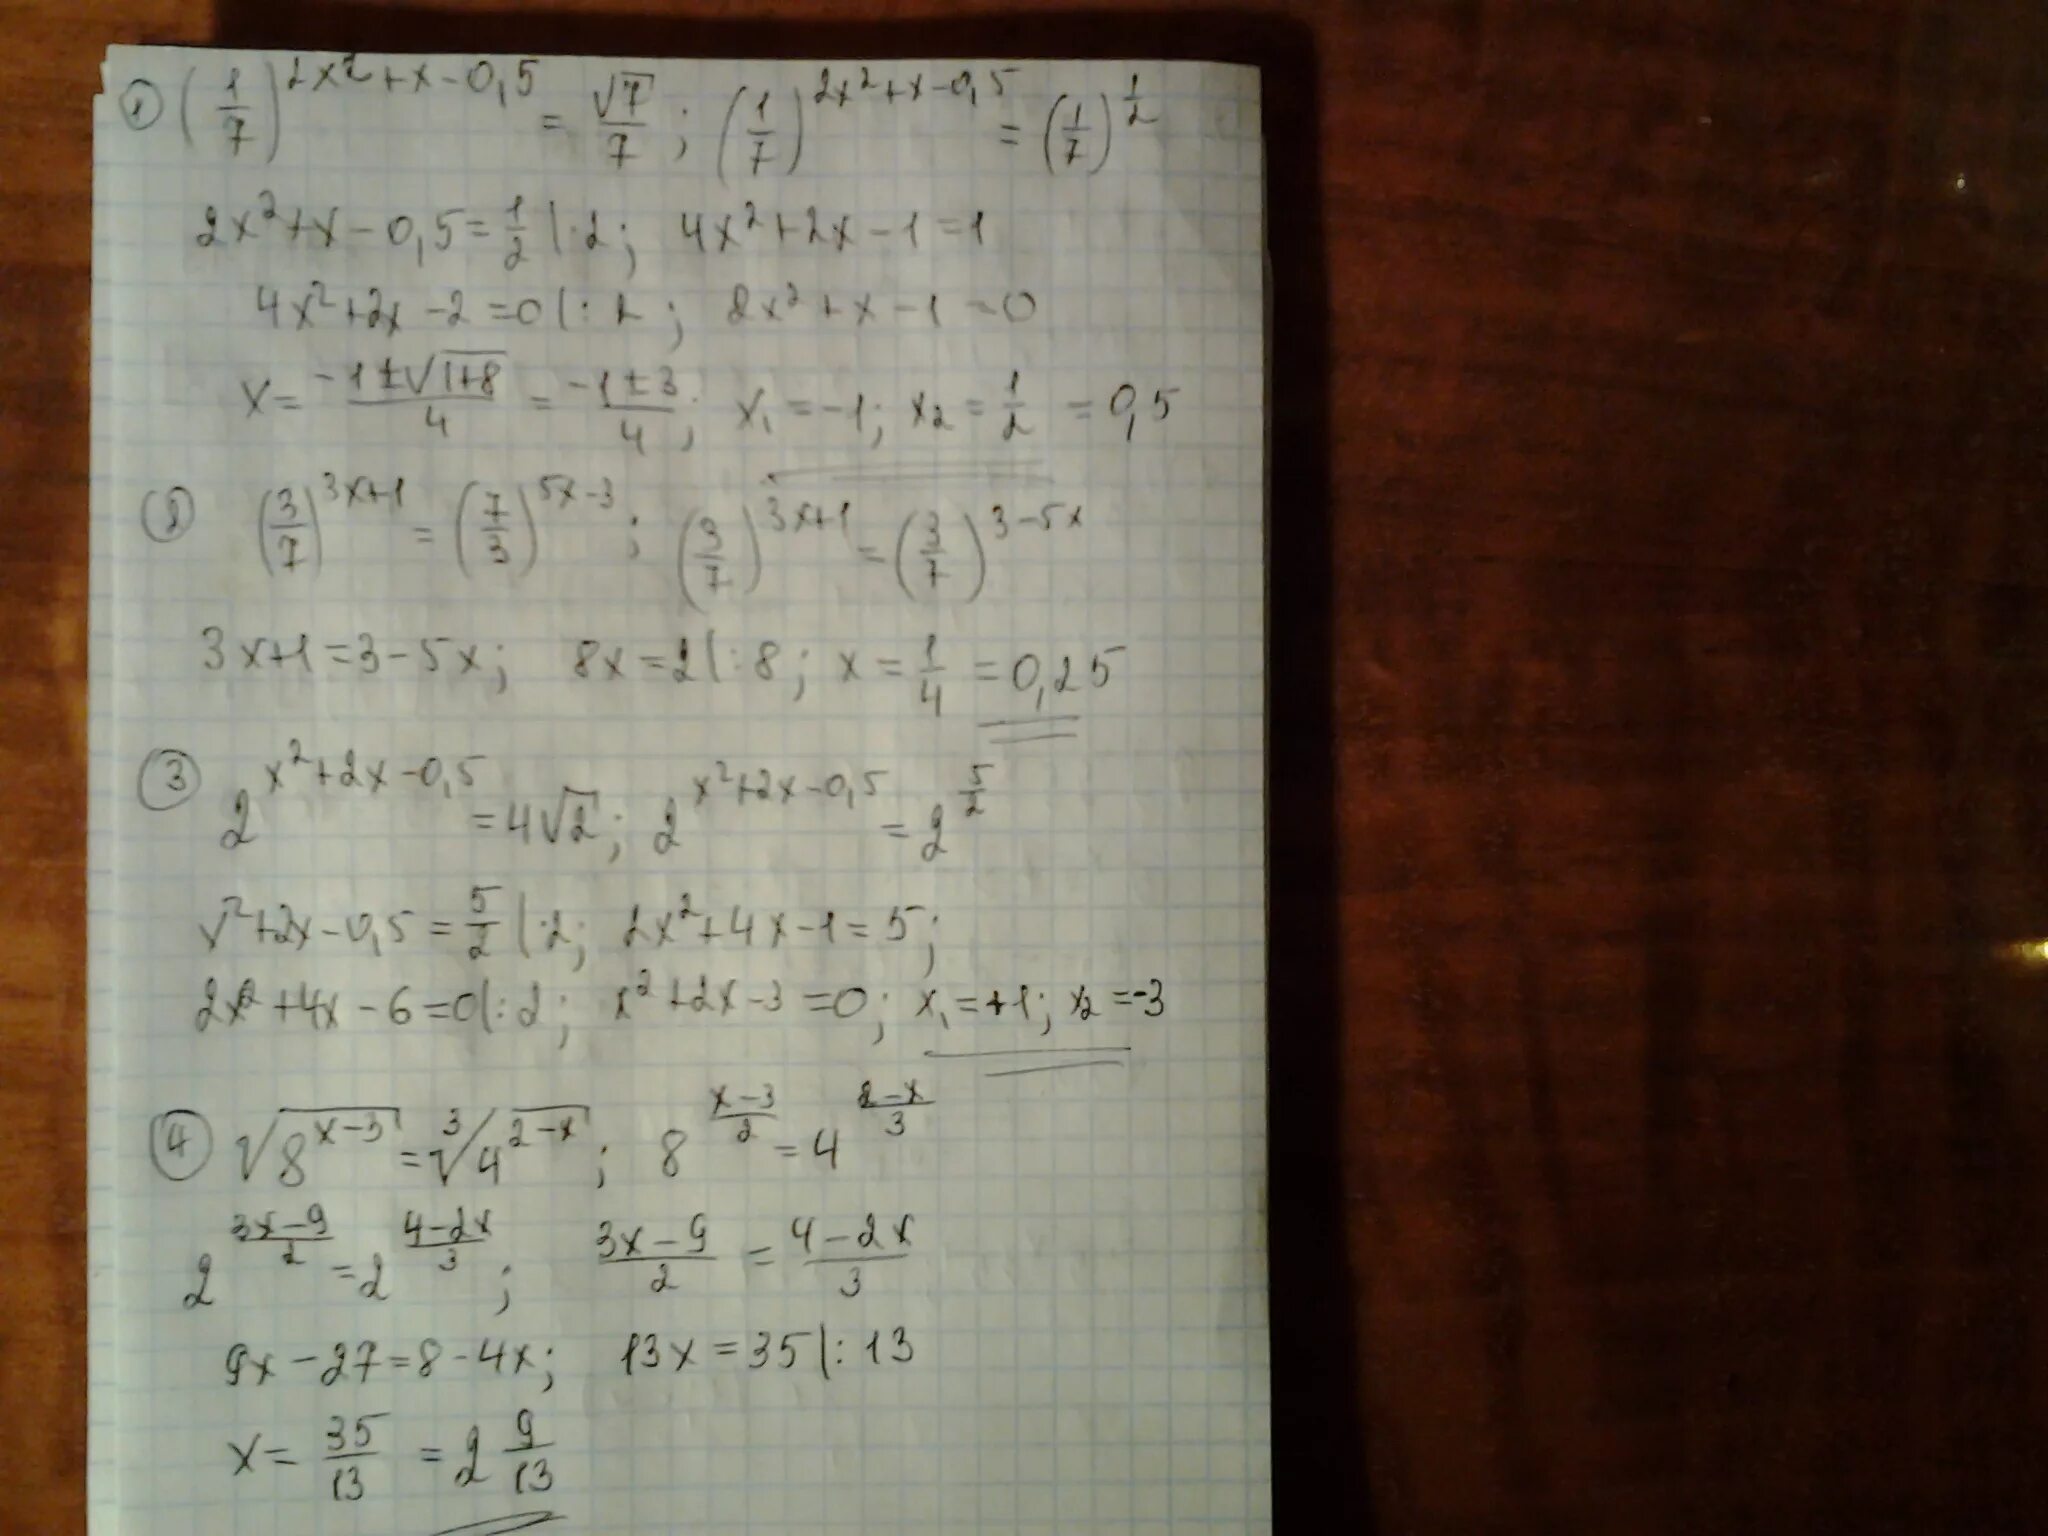 ① (1/7)^(2x²+x-0,5) = √7/7 ; (1/7)^(2x²+x-0,5) = (1/7)^(1/2)
2x²+x-0,5=1/2 |·2; 4x²+2x-1=1
4x²+2x-2=0 |:2 ; 2x²+x-1=0
x= (-1±√(1+8))/4 = (-1±3)/4 ; x₁=-1; x₂=1/2 =0,5
② (3/7)^(3x+1) = (7/3)^(5x-3) ; (3/7)^(3x+1) = (3/7)^(3-5x)
3x+1=3-5x; 8x=2 |:8 ; x=1/4 =0,25
③ 2^(x²+2x-0,5) =4√2 ; 2^(x²+2x-0,5) = 2^(5/2)
x²+2x-0,5=5/2 |·2; 2x²+4x-1=5;
2x²+4x-6=0 |:2; x²+2x-3=0; x₁=+1; x₂=-3
④ √(8^(x-3)) = ³√(4^(2-x)) ; 8^((x-3)/2) = 4^((2-x)/3)
2^((3x-9)/2) = 2^((4-2x)/3) ; (3x-9)/2 = (4-2x)/3
9x-27=8-4x; 13x=35 |:13
x= 35/13 = 2 9/13